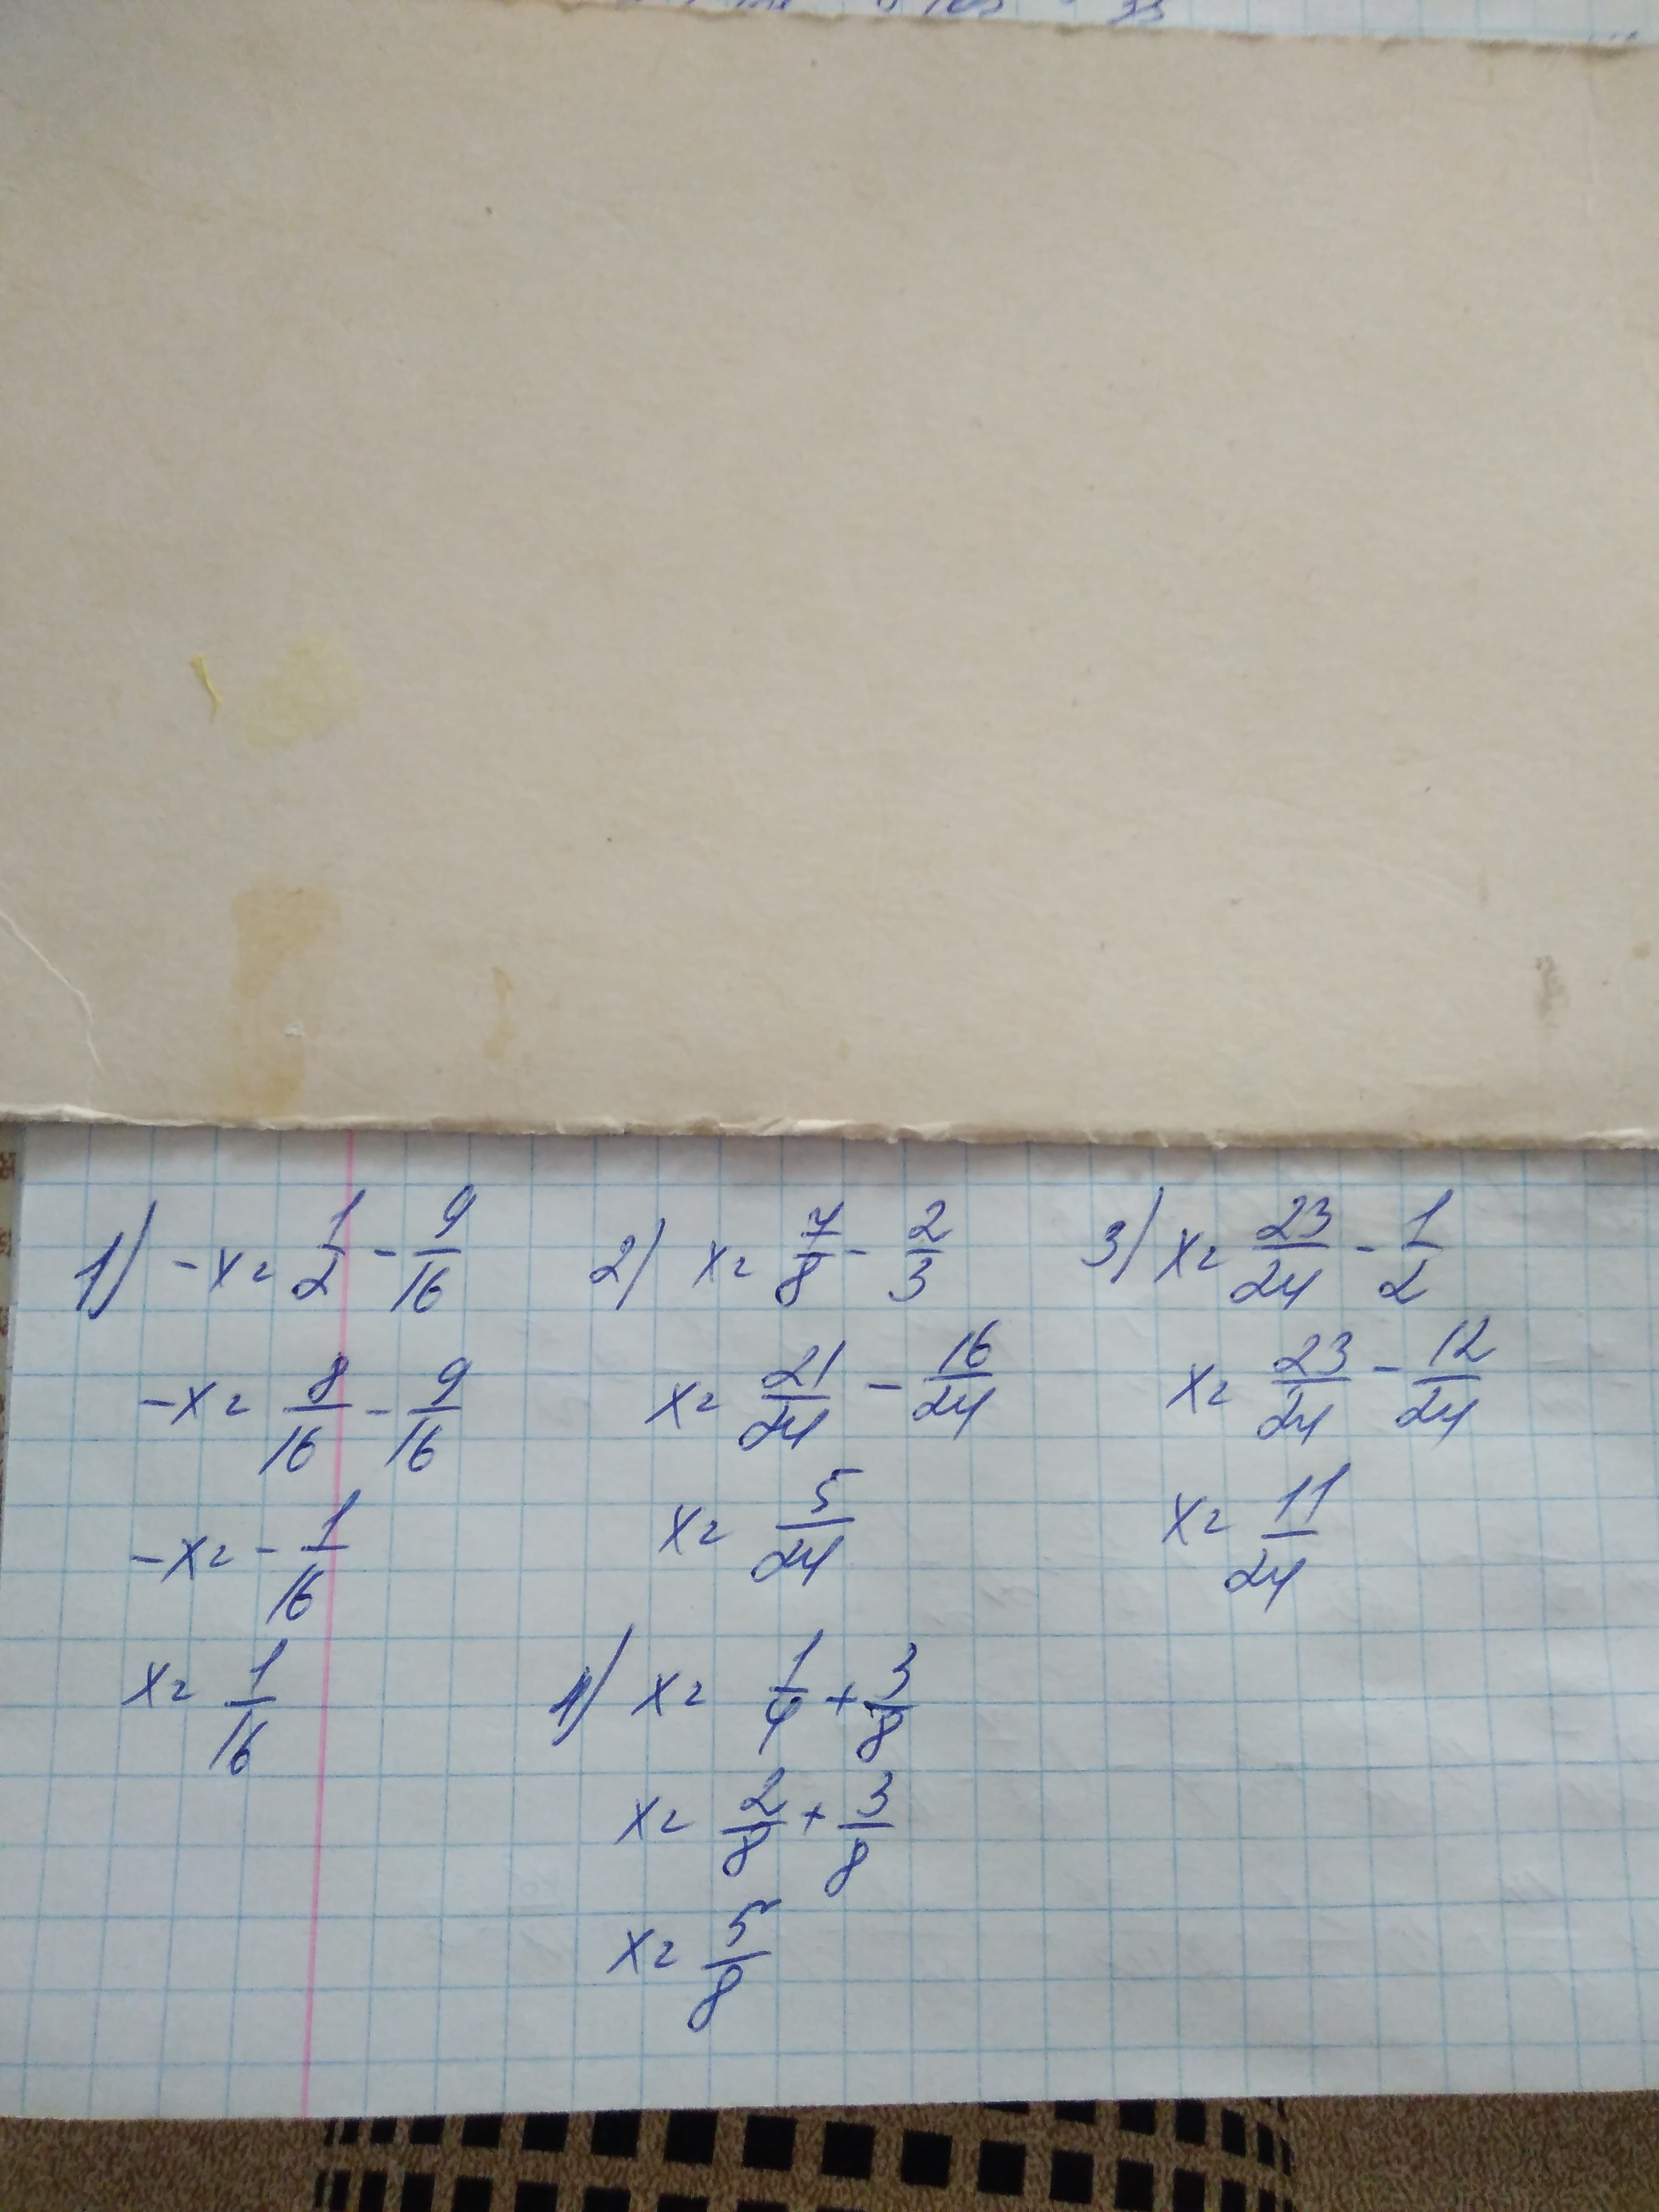 1) -x = 1/2 - 9/16
-x = 8/16 - 9/16
-x = - 1/16
x = 1/16
2) x = 7/8 - 2/3
x = 21/24 - 16/24
x = 5/24
3) x = 23/24 - 1/2
x = 23/24 - 12/24
x = 11/24
4) x = 1/4 + 3/8
x = 2/8 + 3/8
x = 5/8